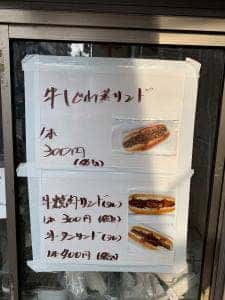 牛しぐれ煮サンド
1本
300円
(税込)
牛焼肉サンド(1コ)
1本 300円 (税込)
牛タンサンド(1コ)
1本400円 (税込)